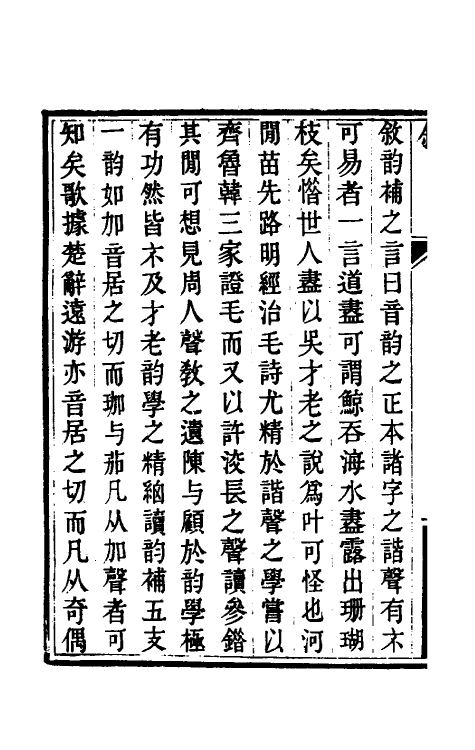 敘韵補之言曰音韵之正本諸字之諧聲有不
可易者一言道盡可謂鯨吞海水盡露出珊瑚
枝矣惜世人盡以吳才老之說爲叶可怪也河
閒苗先路明經治毛詩尤精於諧聲之學嘗以
齊魯韓三家證毛而又以許洨長之聲讀參錯
其閒可想見周人聲敎之遺陳与顧於韵學極
有功然皆不及才老韵學之精緻讀韵補五支
一韵如加音居之切而珈与茄凡从加聲者可
知矣歌據楚辭遠游亦音居之切而凡从奇偶